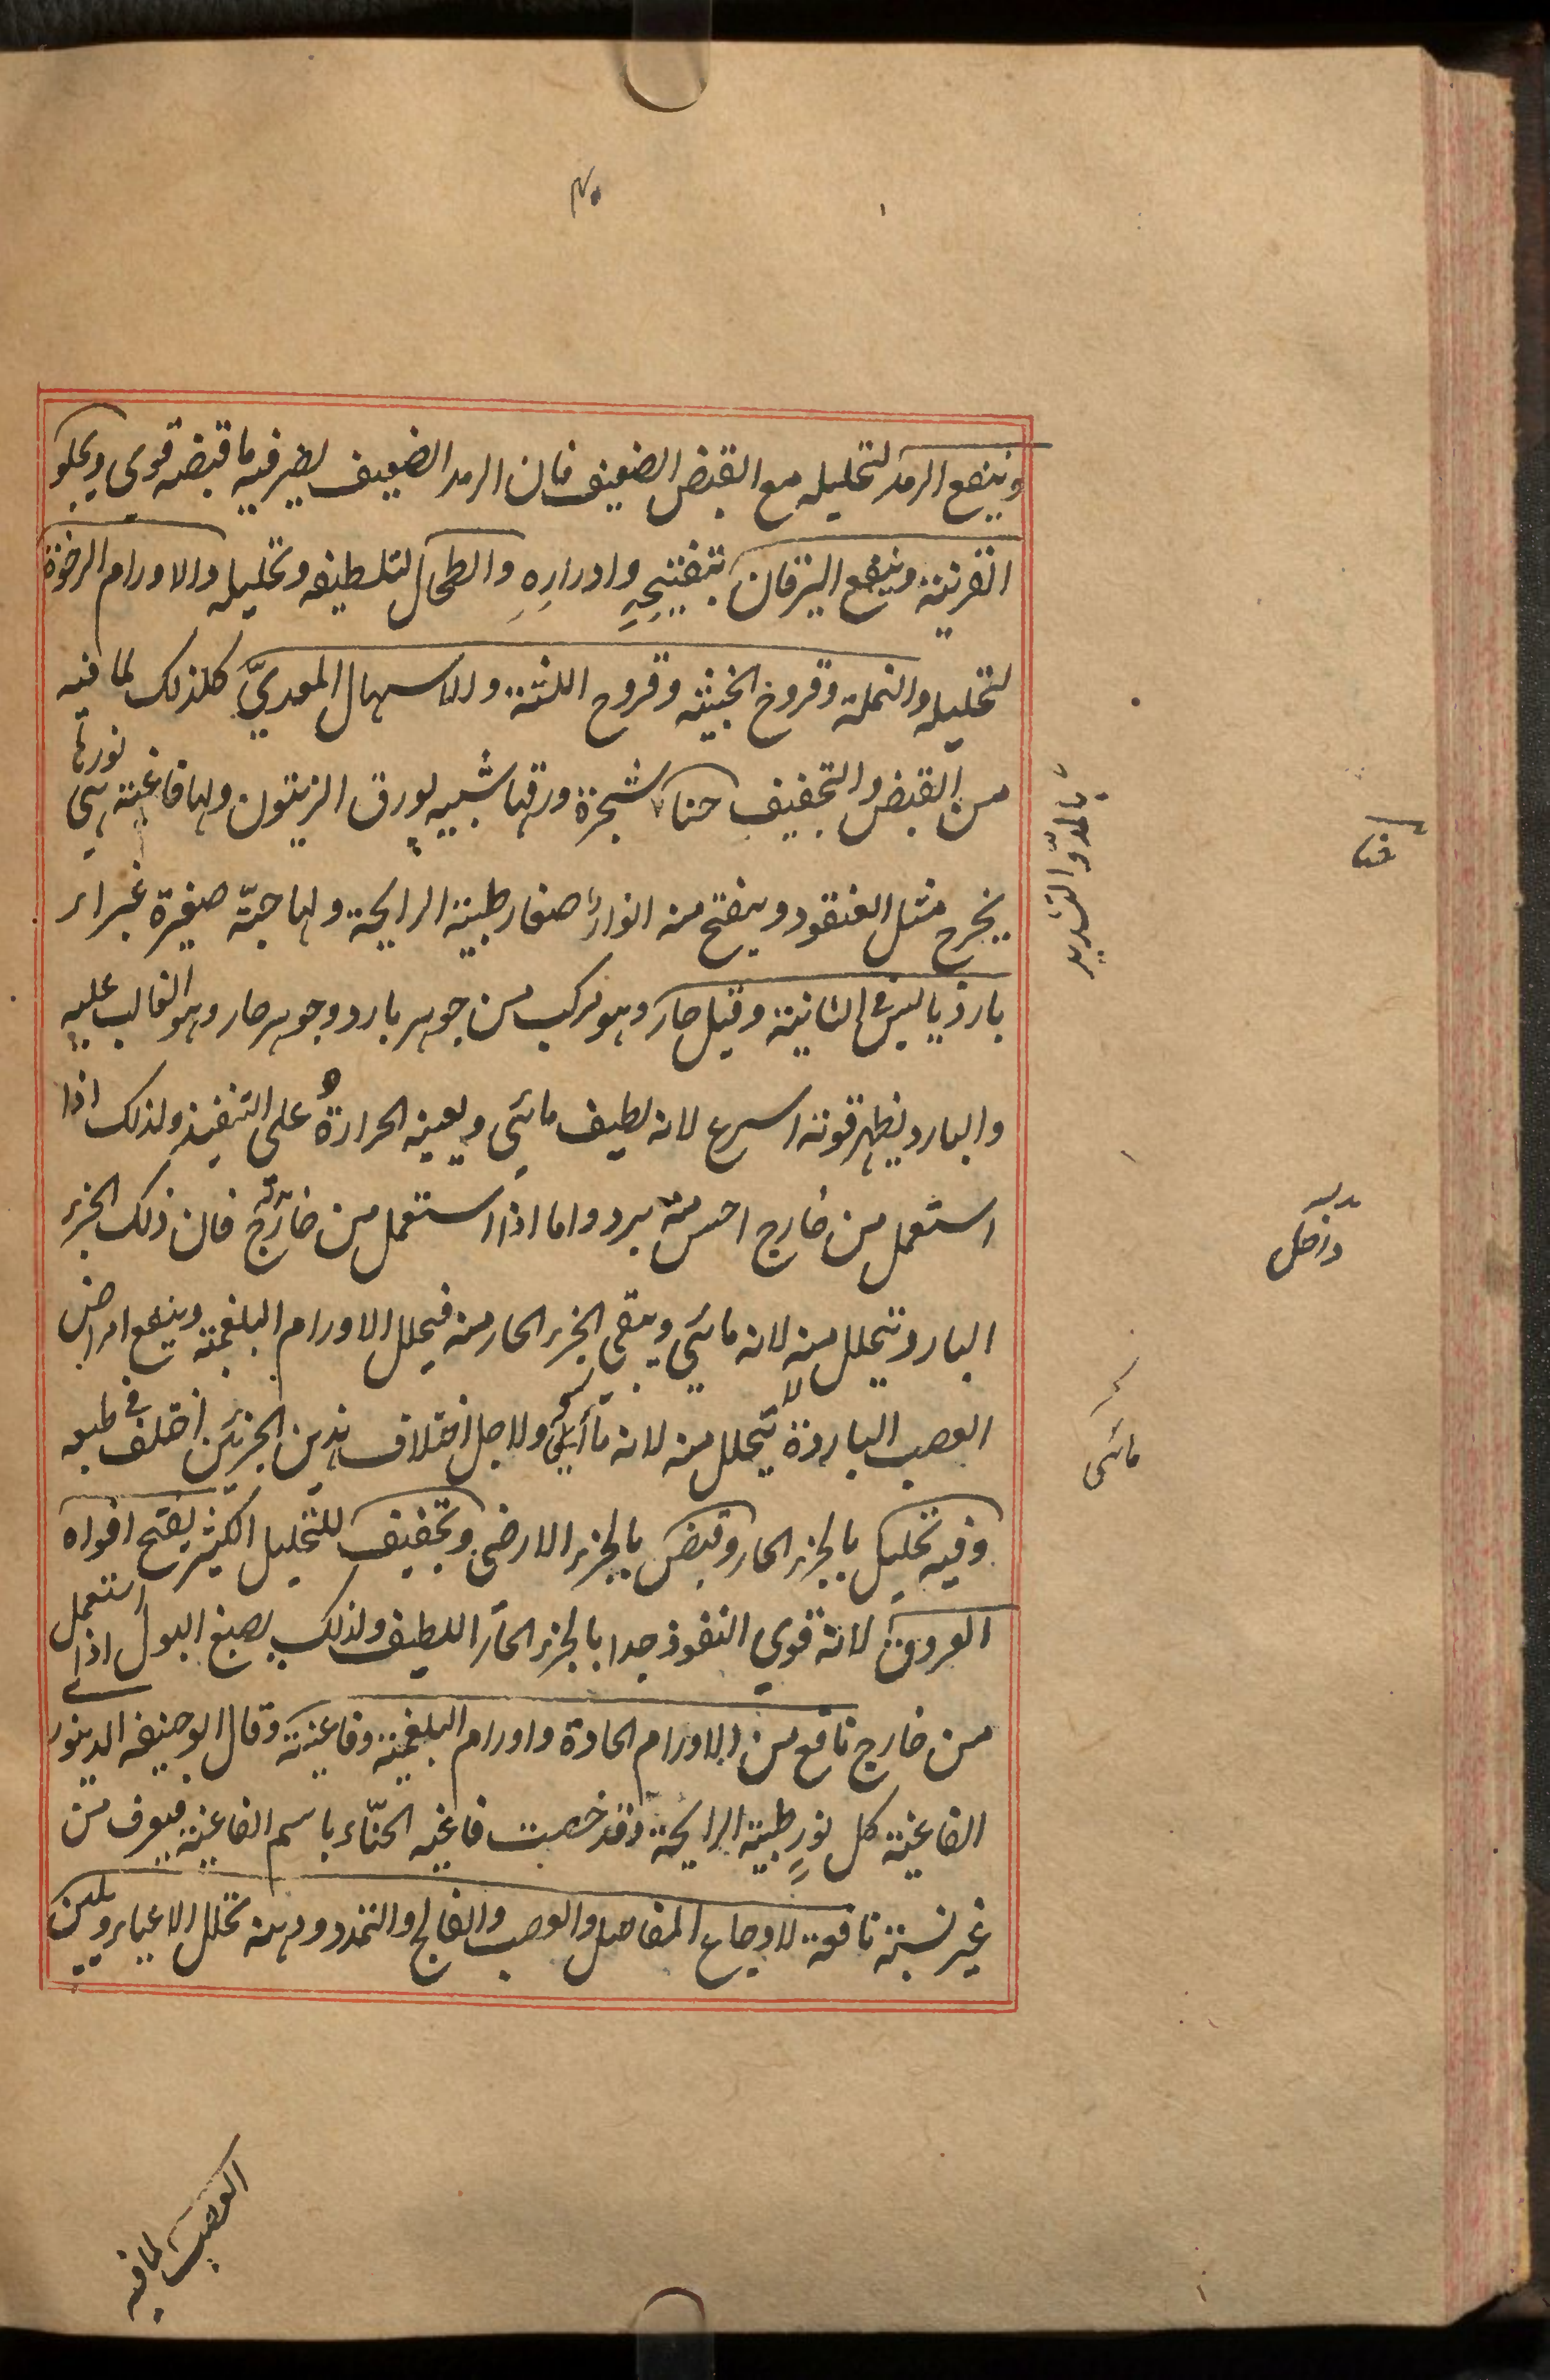 وينفع الرمد لتحليله مع القبض الضعيف فان الرمد الضعيف يضر فيه ما قبضه قوي ويجلو
القرنية وينفع اليرقان بتفتيحِهِ وادرارِهِ والطحال لتلطيفه وتحليله والاورام الرخوة
لتحليله والنملة وقروح الخبيثه وقروح اللثة والاسهال المعديّ كلذلك لما فيه
من القبض والتجفيف حناء شجرة ورقها شبيه بورق الزيتون ولها فاغية هي نورها
يخرج مثل العنقود وينفتح منه انوار صغار طيبة الرايحة ولها حبّة صغيرة غبراء
بارد يابس في الثانية وقيل حار وهو مركب من جوهر بارد وجوهر حار وهو الغالب عليه
والبارد يظهر قوته اسرع لانه لطيف مائي ويعينه الحرارة على التنفيذ ولذلك اذا
استعمل من خارج احس منه ببرد واما اذا استعمل من خارج فان ذلك الجزء
البارد يتحلل منه لانه مائي ويبقى الجزء الحار منه فيحلل الاورام البلغمية وينفع امراض
العصب الباردة لا يتحلل منه لانه مائي ولاجل اختلاف هذين الجزئين اختلف في طبعه
وفيه تحليل بالجزء الحار وقبض بالجزء الارضي وتجفيف للتحليل الكثير يفتح افواه
العروق لانه قوي النفوذ جدا بالجزء الحار اللطيف ولذلك يصبغ البول اذا استعمل
من خارج نافع من الاورام الحادة واورام البلغمية وفاغيته وقال ابو حنيفه الدينوري
الفاغية كل نورٍ طيبة الرايحة وقد خصت فاغية الحنّاء باسم الفاغية فيعرف من
غير نسبة نافعة لاوجاع المفاصل والعصب والفالج والتمدد ودهنه تحلل الاعياء ويلين
بالمدّ والتشديد
حنا
داخل
مائي
العصب لما فيه